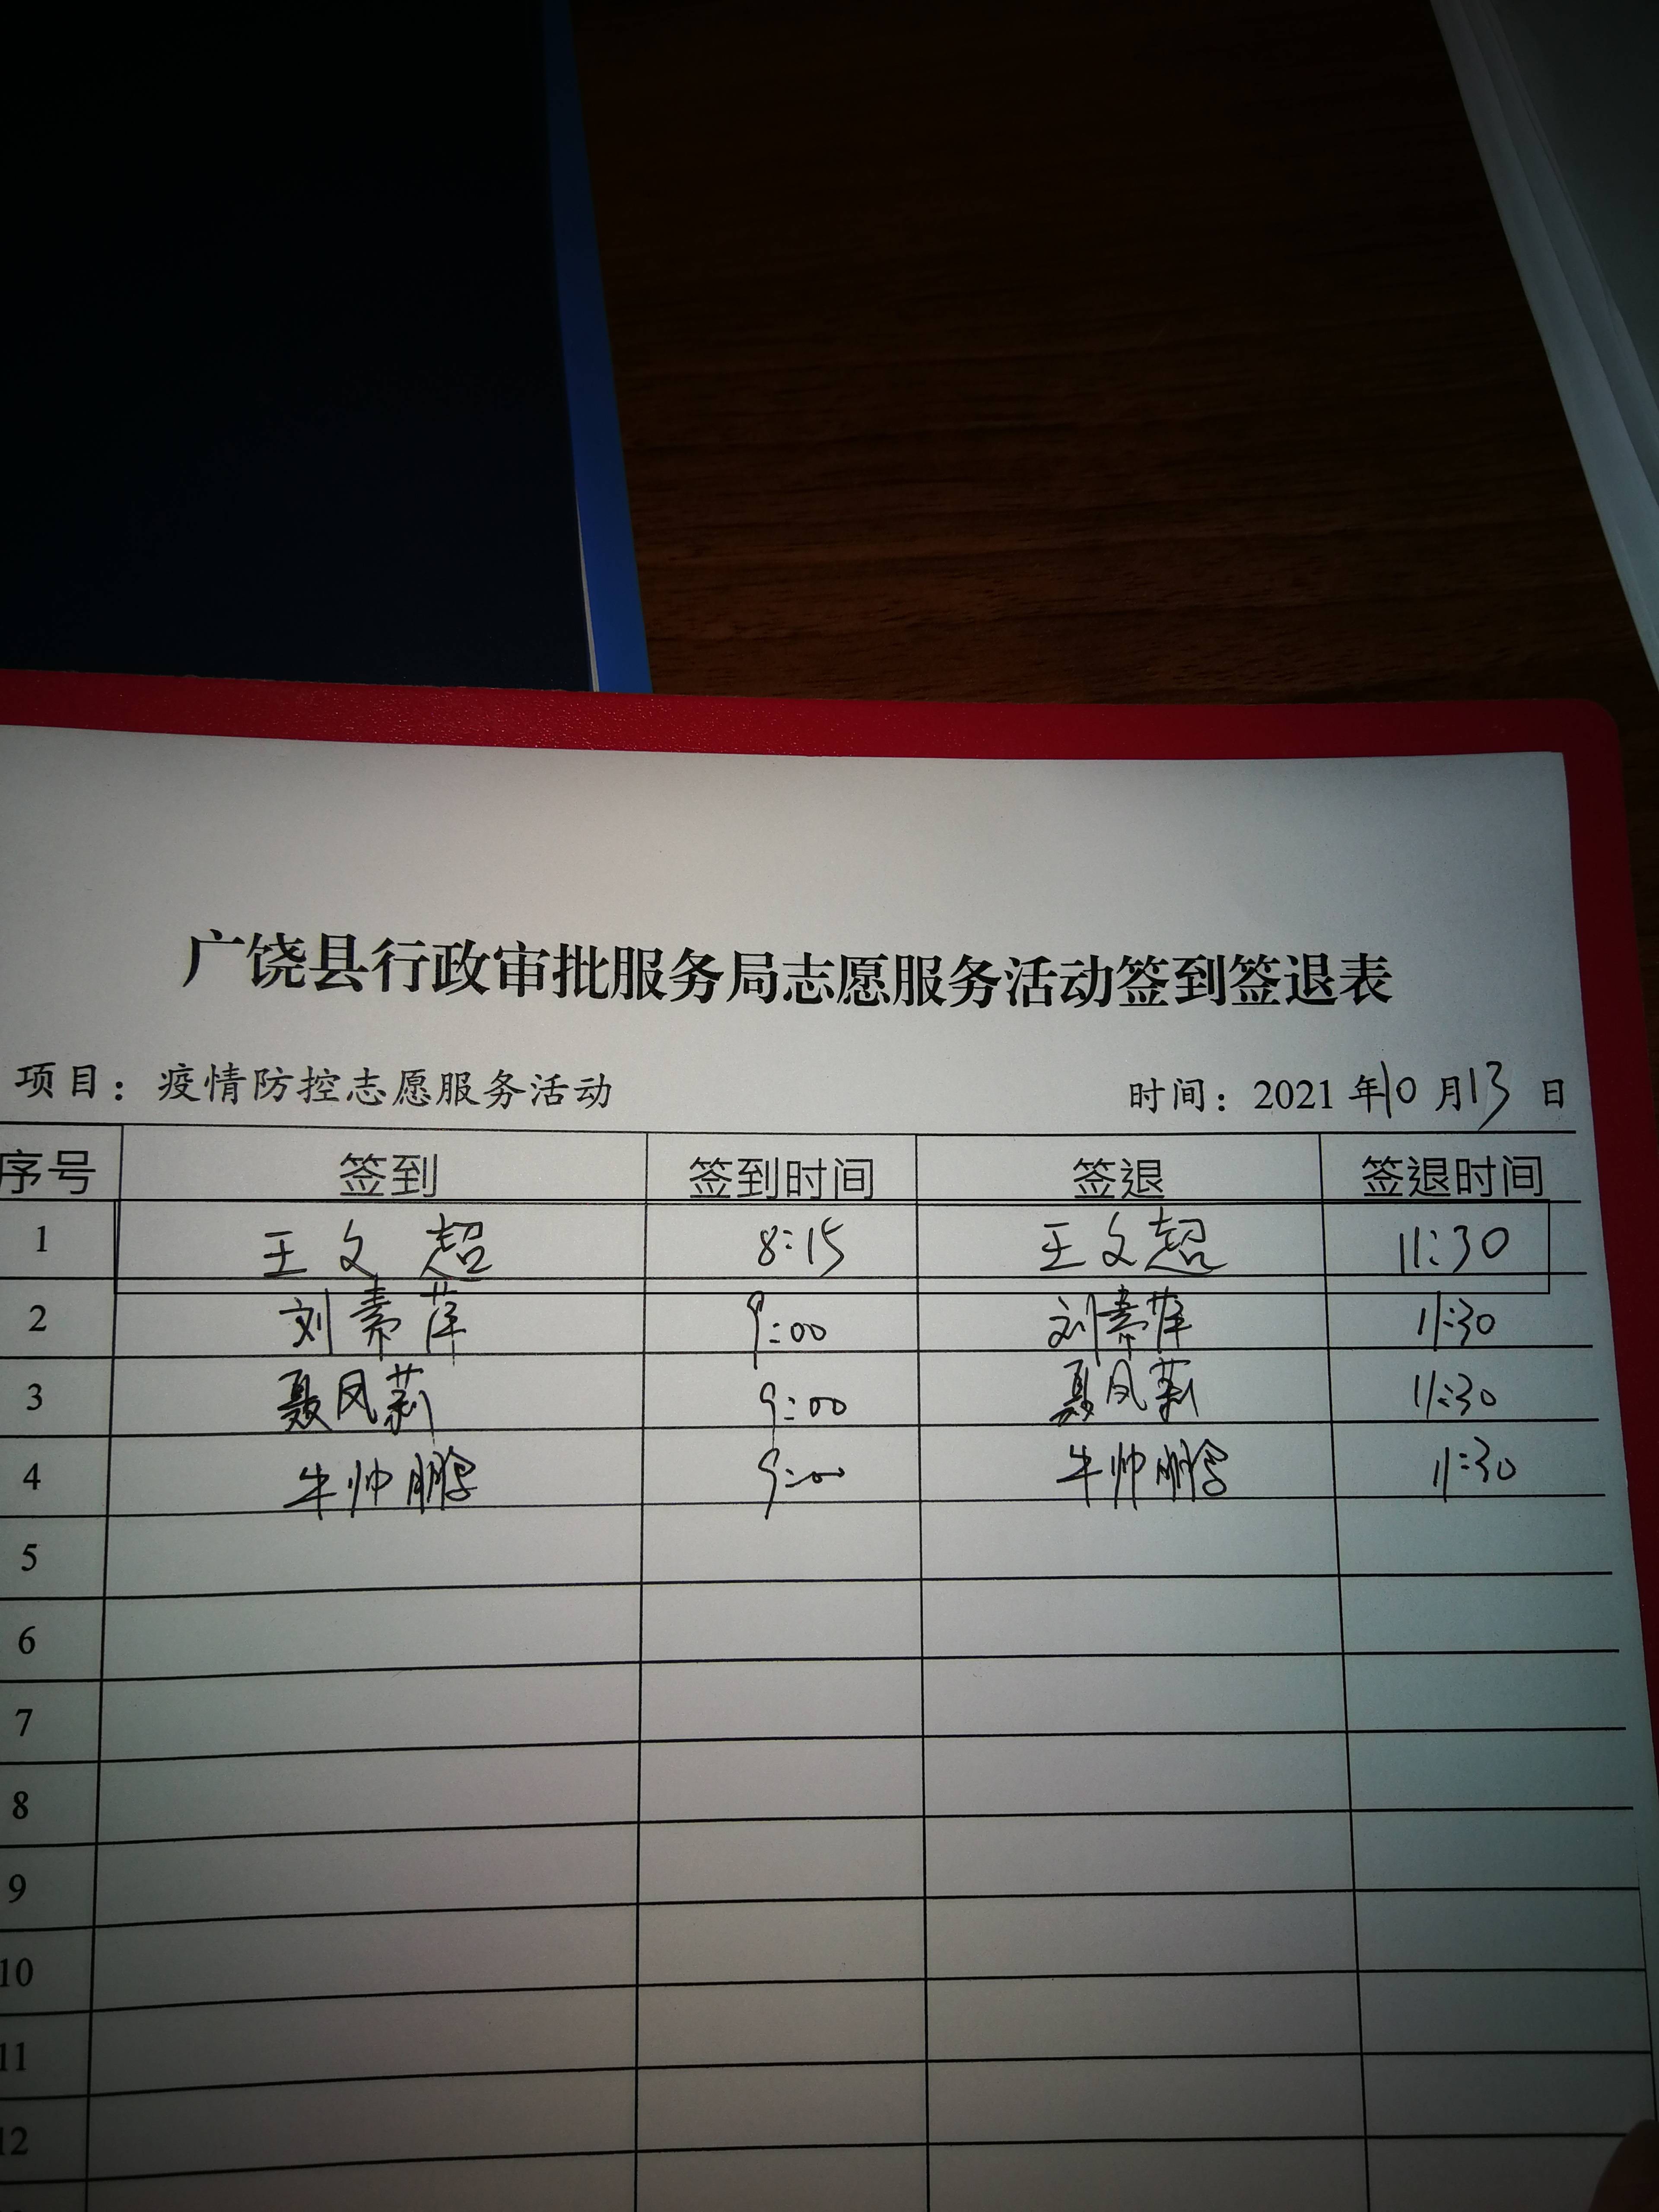 广饶县行政审批服务局志愿服务活动签到签退表
项目：疫情防控志愿服务活动 时间：2021 年10 月13 日
序号 签到 签到时间 签退 签退时间
1 王文超 8:15 王文超 11:30
2 刘素萍 9:00 刘素萍 11:30
3 聂凤莉 9:00 聂凤莉 11:30
4 牛帅鹏 9:00 牛帅鹏 11:30
5
6
7
8
9
10
11
12